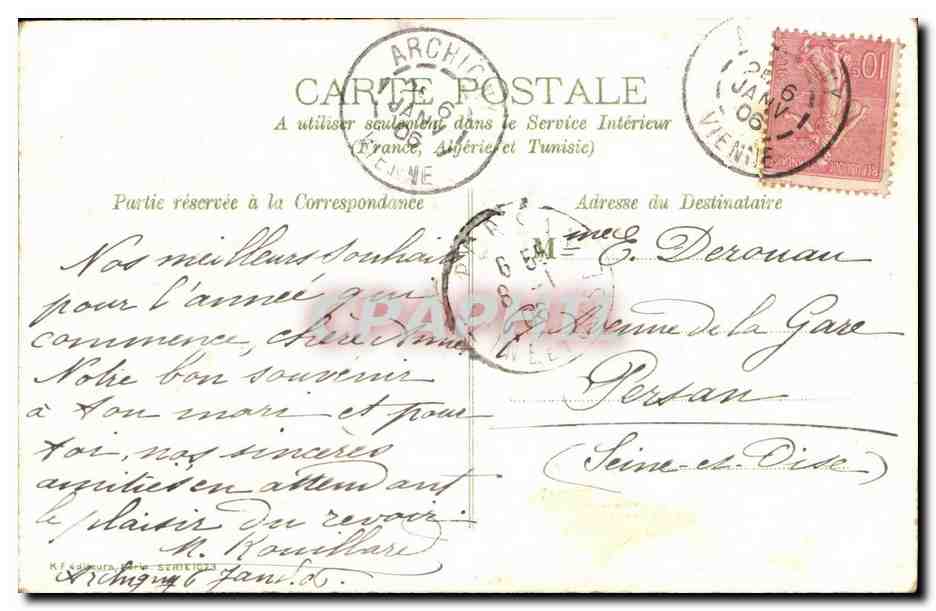 CARTE POSTALE
A utiliser seulement dans le Service Intérieur
(France, Algérie et Tunisie)
Partie réservée à la Correspondance
Nos meilleurs souhaits
pour l'année qui
commence, chère Amie.
Notre bon souvenir
à ton mari et pour
toi, nos sincères
amitiés en attendant
le plaisir du revoir.
M. Rouillard
Archigny 6 Janv.
K.F. éditeurs, Paris SERIE
Adresse du Destinataire
Mme E. Derouan
69 Avenue de la Gare
Persan
(Seine-et-Oise)
ARCHIG
6
JANV
06
VIENNE
6
JANV
06
VIENNE
10
CPAPHIL